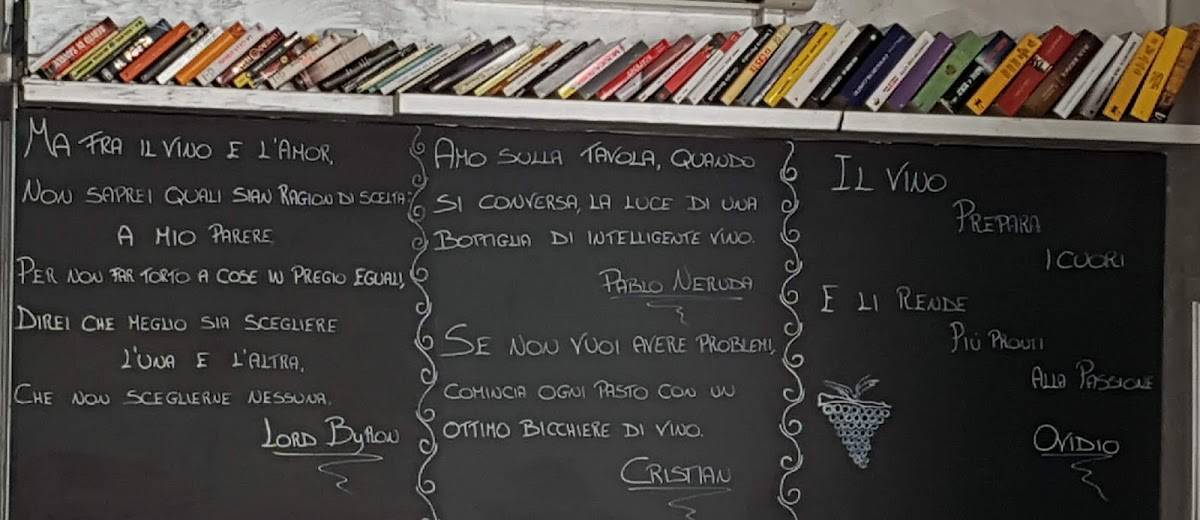 MA FRA IL VINO E L'AMOR,
NON SAPREI QUALI SIAN RAGION DI SCELTA:
A MIO PARERE
PER NON FAR TORTO A COSE IN PREGIO EGUALI,
DIREI CHE MEGLIO SIA SCEGLIERE
L'UNA E L'ALTRA,
CHE NON SCEGLIERNE NESSUNA.
LORD BYRON
AMO SULLA TAVOLA, QUANDO
SI CONVERSA, LA LUCE DI UNA
BOTTIGLIA DI INTELLIGENTE VINO.
PABLO NERUDA
SE NON VUOI AVERE PROBLEMI,
COMINCIA OGNI PASTO CON UN
OTTIMO BICCHIERE DI VINO.
CRISTIAN
IL VINO
PREPARA
I CUORI
E LI RENDE
PIÙ PRONTI
ALLA PASSIONE
OVIDIO